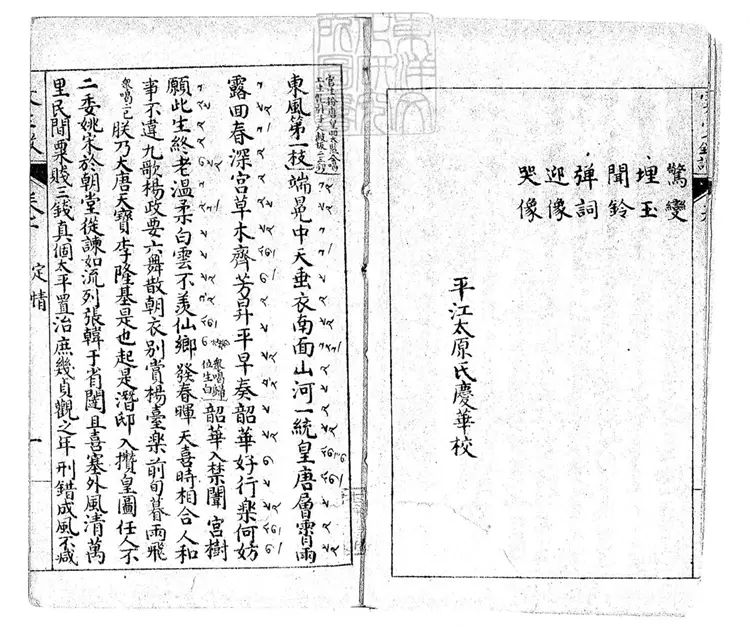 驚變
埋玉
聞鈴
彈詞
迎像
哭像
平江太原氏慶華校
東風第一枝 端冕中天垂衣南面山河一統皇唐層霄雨
露回春深宮草木齊芳昇平早奏韶華好行樂何妨
願此生終老溫柔白雲不羨仙鄉 韶華入禁闈宮樹
發春暉天喜時相合人和
事不違九歌楊政要六舞散朝衣別賞楊臺樂前旬暮雨飛
朕乃大唐天寶李隆基是也起是潛邸入攢皇圖任人不
二委姚宋於朝堂從諫如流列張韓于省闥且喜塞外風清萬
里民間粟賤三錢真個太平置治庶幾貞觀之年刑錯成風不減
定情
一